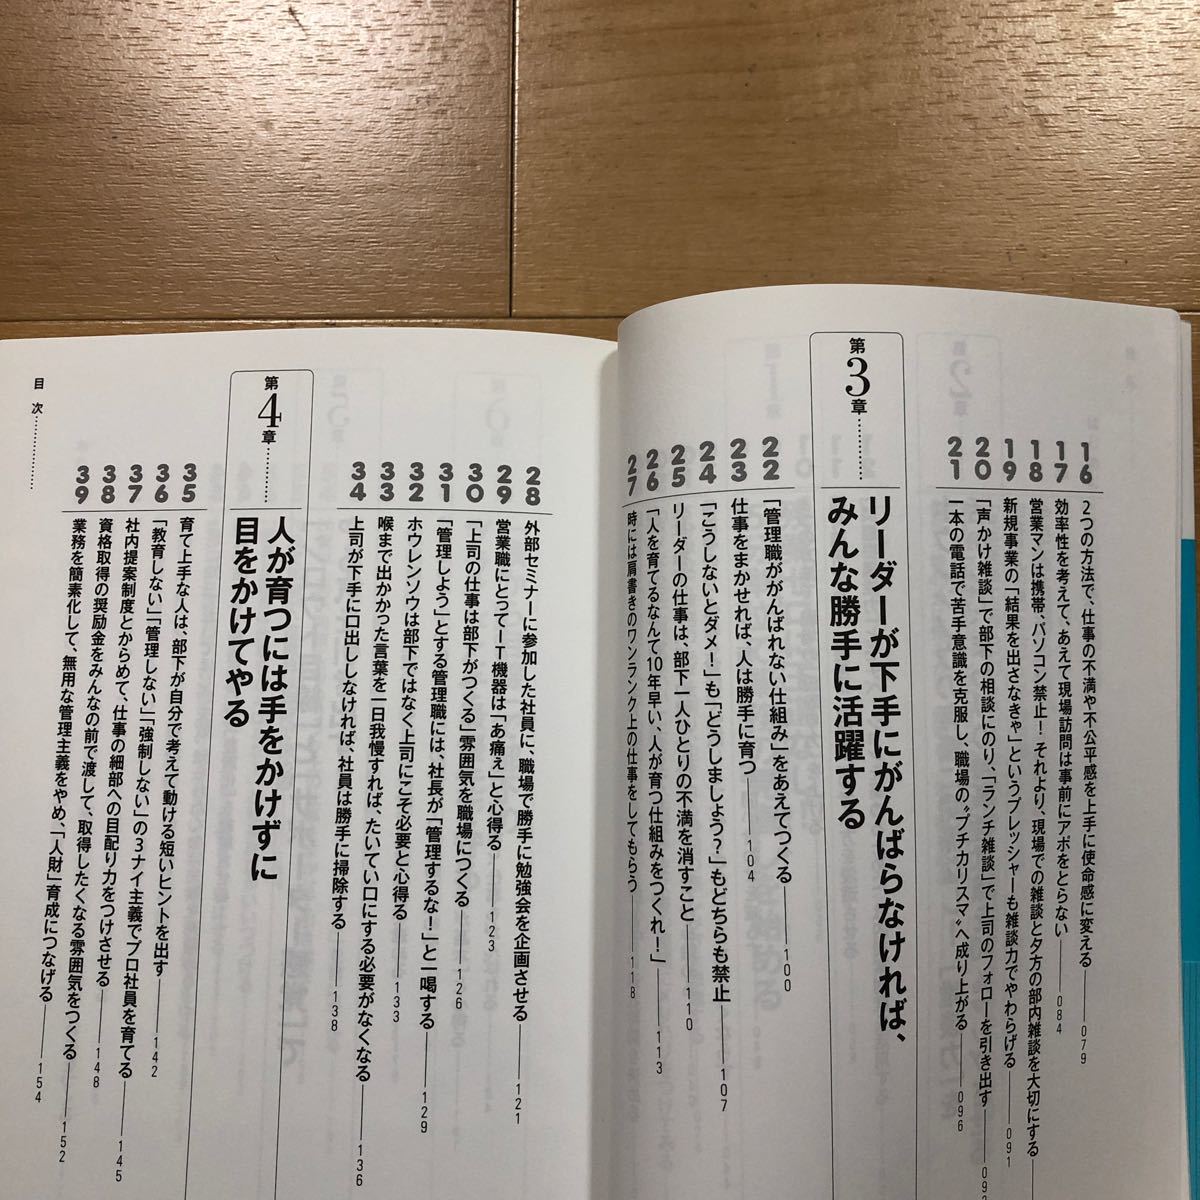 16 2つの方法で、仕事の不満や不公平感を上手に使命感に変える 079
17 効率性を考えて、あえて現場訪問は事前にアポをとらない 084
18 営業マンは携帯、パソコン禁止! それより、現場での雑談と夕方の部内雑談を大切にする
19 新規事業の「結果を出さなきゃ」というプレッシャーも雑談力でやわらげる 091
20 「声かけ雑談」で部下の相談にのり、「ランチ雑談」で上司のフォローを引き出す
21 一本の電話で苦手意識を克服し、職場の〝プチカリスマ〟へ成り上がる 096
第3章
リーダーが下手にがんばらなければ、
みんな勝手に活躍する
22 「管理職ががんばれない仕組み」をあえてつくる 100
23 仕事をまかせれば、人は勝手に育つ 104
24 「こうしないとダメ!」も「どうしましょう?」もどちらも禁止 107
25 リーダーの仕事は、部下一人ひとりの不満を消すこと 110
26 「人を育てるなんて10年早い、人が育つ仕組みをつくれ!」 113
27 時には肩書きのワンランク上の仕事をしてもらう 118
28 外部セミナーに参加した社員に、職場で勝手に勉強会を企画させる 121
29 営業職にとってIT機器は「あ痛ぇ」と心得る 123
30 「上司の仕事は部下がつくる」雰囲気を職場につくる 126
31 「管理しよう」とする管理職には、社長が「管理するな!」と一喝する 129
32 ホウレンソウは部下ではなく上司にこそ必要と心得る 133
33 喉まで出かかった言葉を一日我慢すれば、たいてい口にする必要がなくなる 136
34 上司が下手に口出ししなければ、社員は勝手に掃除する 138
第4章
人が育つには手をかけずに
目をかけてやる
35 育て上手な人は、部下が自分で考えて動ける短いヒントを出す 142
36 「教育しない」「管理しない」「強制しない」の3ナイ主義でプロ社員を育てる 145
37 社内提案制度とからめて、仕事の細部への目配り力をつけさせる 148
38 資格取得の奨励金をみんなの前で渡して、取得したくなる雰囲気をつくる 152
39 業務を簡素化して、無用な管理主義をやめ、「人財」育成につなげる 154
目 次